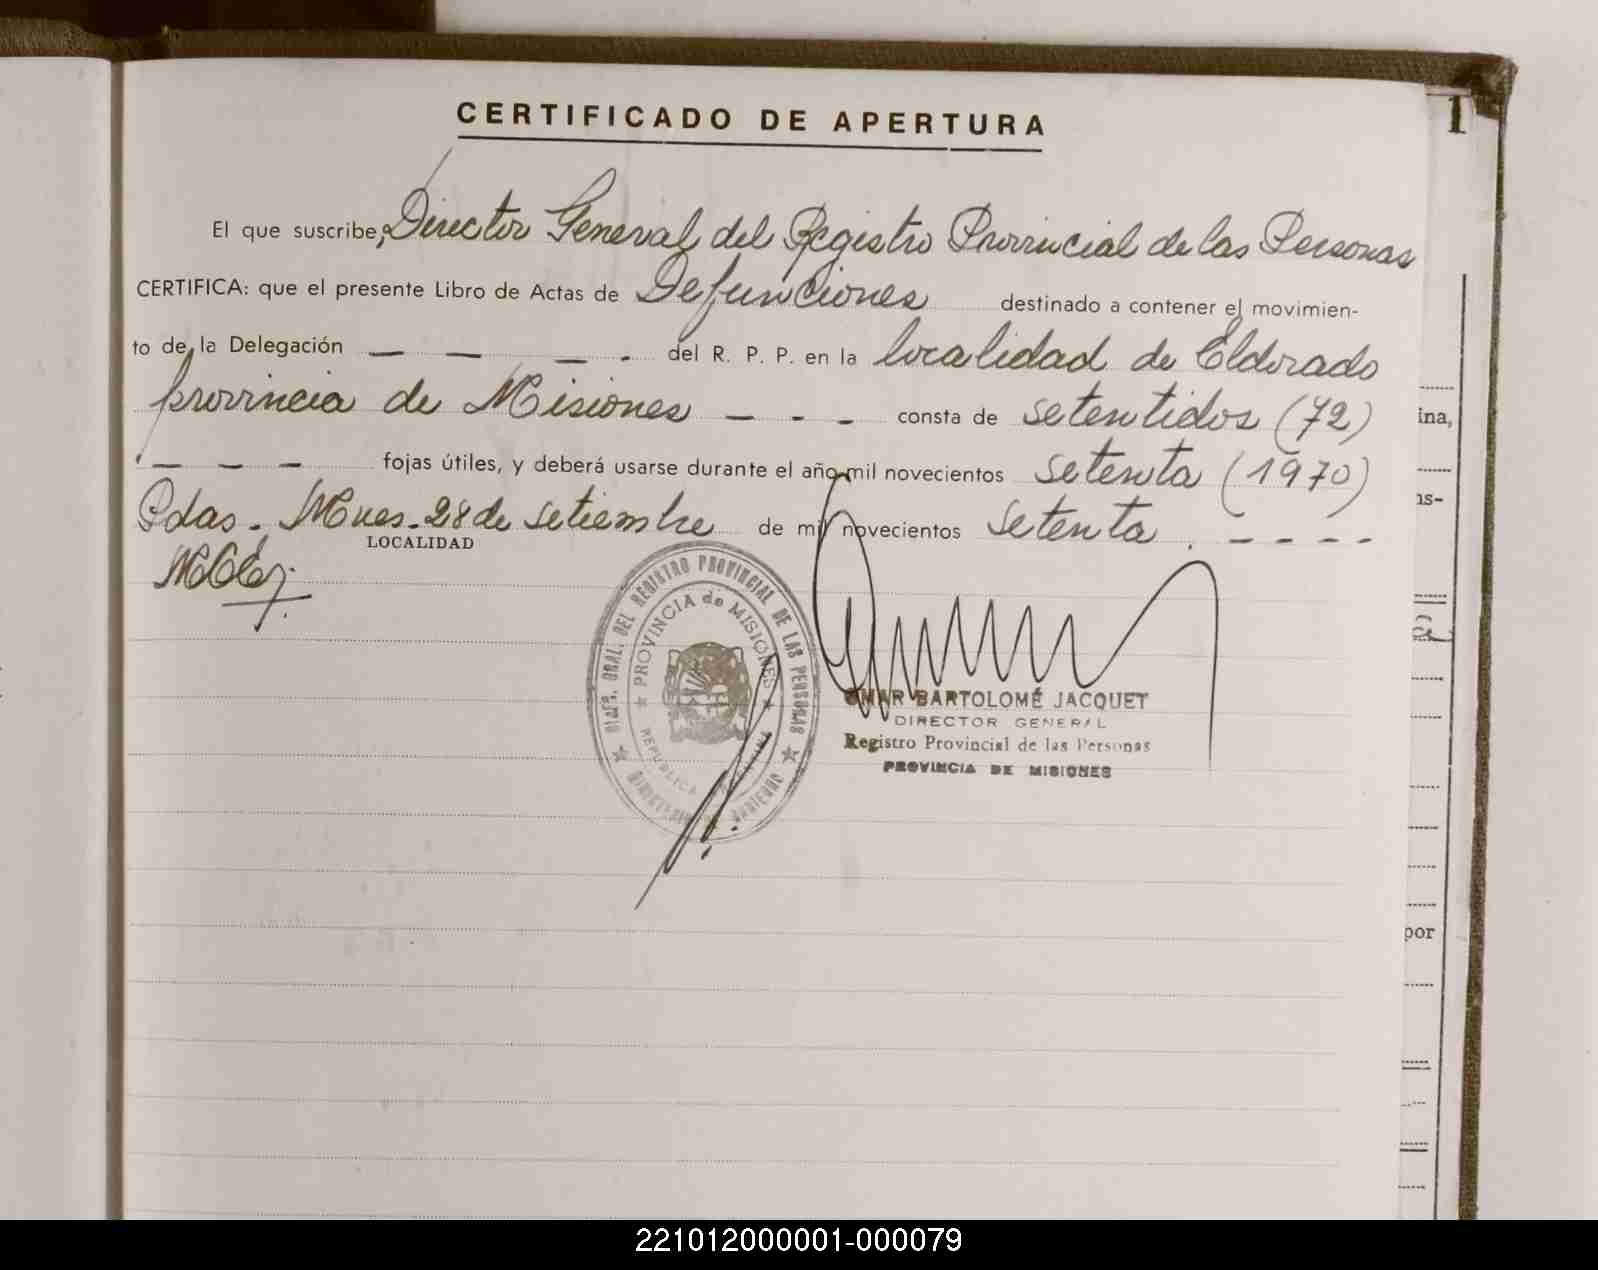 CERTIFICADO DE APERTURA
1
El que suscribe, Director General del Registro Provincial de las Personas
CERTIFICA: que el presente Libro de Actas de Defunciones destinado a contener el movimien-
to de la Delegación — — — . del R. P. P. en la localidad de Eldorado
provincia de Misiones — - - consta de setentidos (72)
— — — fojas útiles, y deberá usarse durante el año mil novecientos setenta (1970)
Pdas. Mnes. 28 de setiembre de mil novecientos setenta . - - - -
LOCALIDAD
REGISTRO PROVINCIAL DE LAS PERSONAS
PROVINCIA de MISIONES
REPUBLICA ARGENTINA
OMAR BARTOLOMÉ JACQUET
DIRECTOR GENERAL
Registro Provincial de las Personas
PROVINCIA DE MISIONES
ina,
ns-
por
221012000001-000079